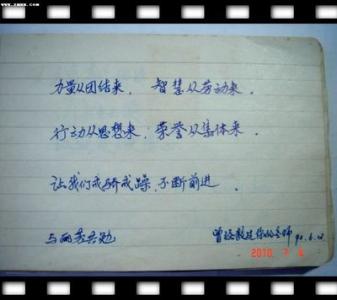 力量从团结来，智慧从劳动来，
行动从思想来，荣誉从集体来，
让我们戒骄戒躁，不断前进。
与丽芳共勉
曾经教过你的老师 90.6.
2010 7